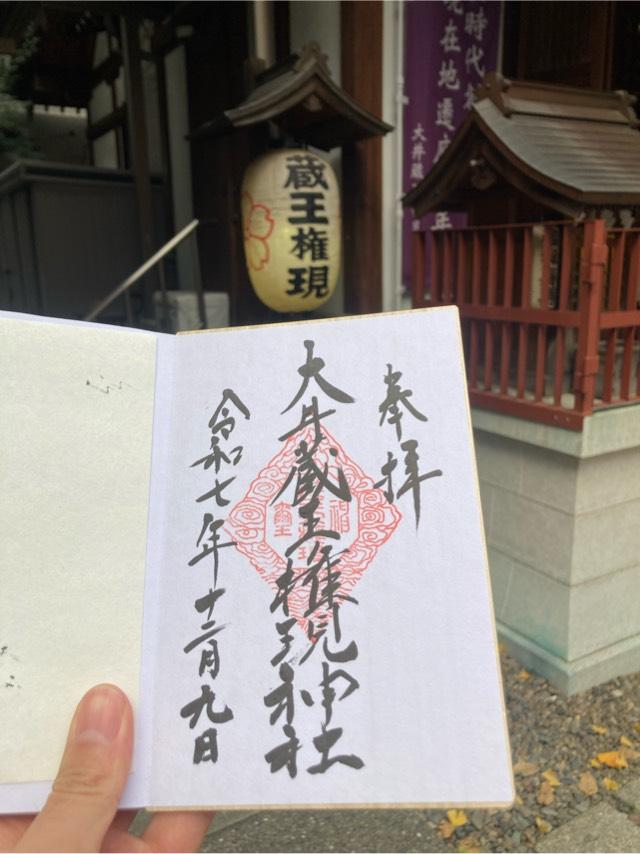 奉拝
大井蔵王権現神社
令和七年十二月九日
蔵王権現
時代
現在地遷
大井蔵
年